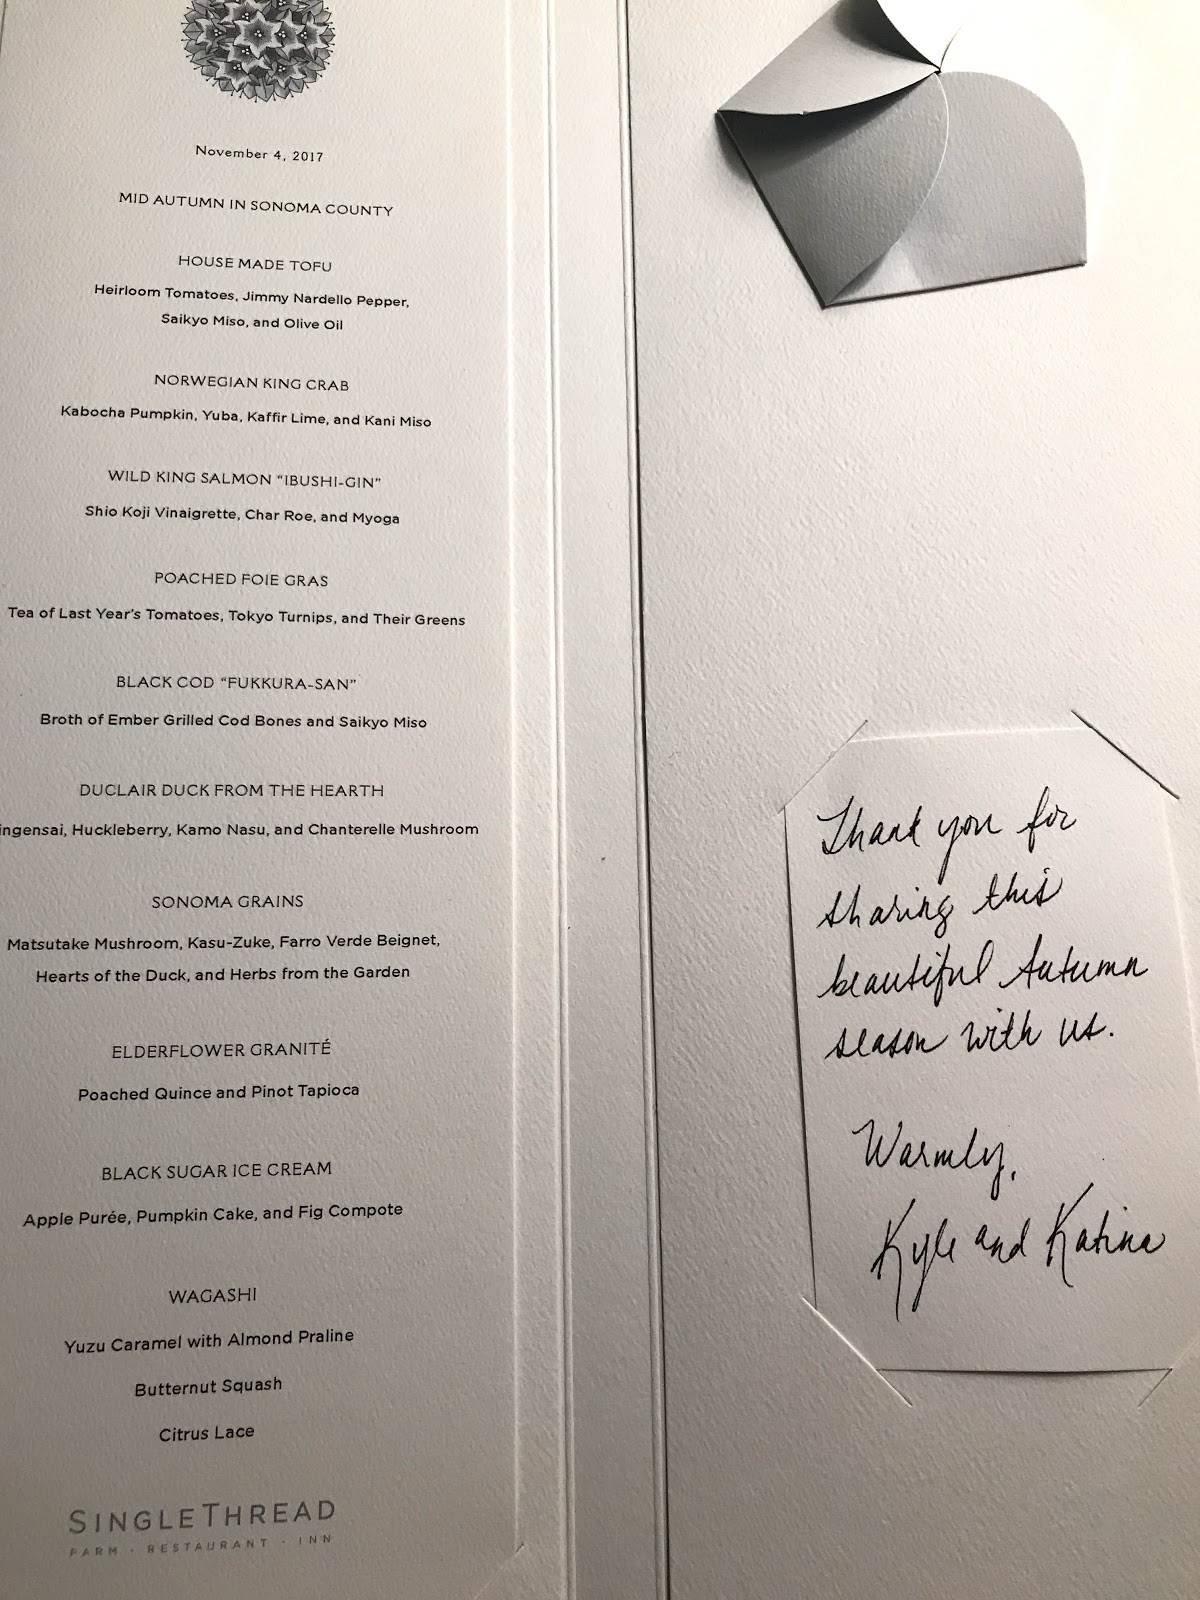 November 4, 2017
MID AUTUMN IN SONOMA COUNTY
HOUSE MADE TOFU
Heirloom Tomatoes, Jimmy Nardello Pepper,
Saikyo Miso, and Olive Oil
NORWEGIAN KING CRAB
Kabocha Pumpkin, Yuba, Kaffir Lime, and Kani Miso
WILD KING SALMON “IBUSHI-GIN”
Shio Koji Vinaigrette, Char Roe, and Myoga
POACHED FOIE GRAS
Tea of Last Year’s Tomatoes, Tokyo Turnips, and Their Greens
BLACK COD “FUKKURA-SAN”
Broth of Ember Grilled Cod Bones and Saikyo Miso
DUCLAIR DUCK FROM THE HEARTH
ingensai, Huckleberry, Kamo Nasu, and Chanterelle Mushroom
SONOMA GRAINS
Matsutake Mushroom, Kasu-Zuke, Farro Verde Beignet,
Hearts of the Duck, and Herbs from the Garden
ELDERFLOWER GRANITÉ
Poached Quince and Pinot Tapioca
BLACK SUGAR ICE CREAM
Apple Purée, Pumpkin Cake, and Fig Compote
WAGASHI
Yuzu Caramel with Almond Praline
Butternut Squash
Citrus Lace
SINGLETHREAD
FARM · RESTAURANT · INN
Thank you for
sharing this
beautiful Autumn
season with us.
Warmly,
Kyle and Katina